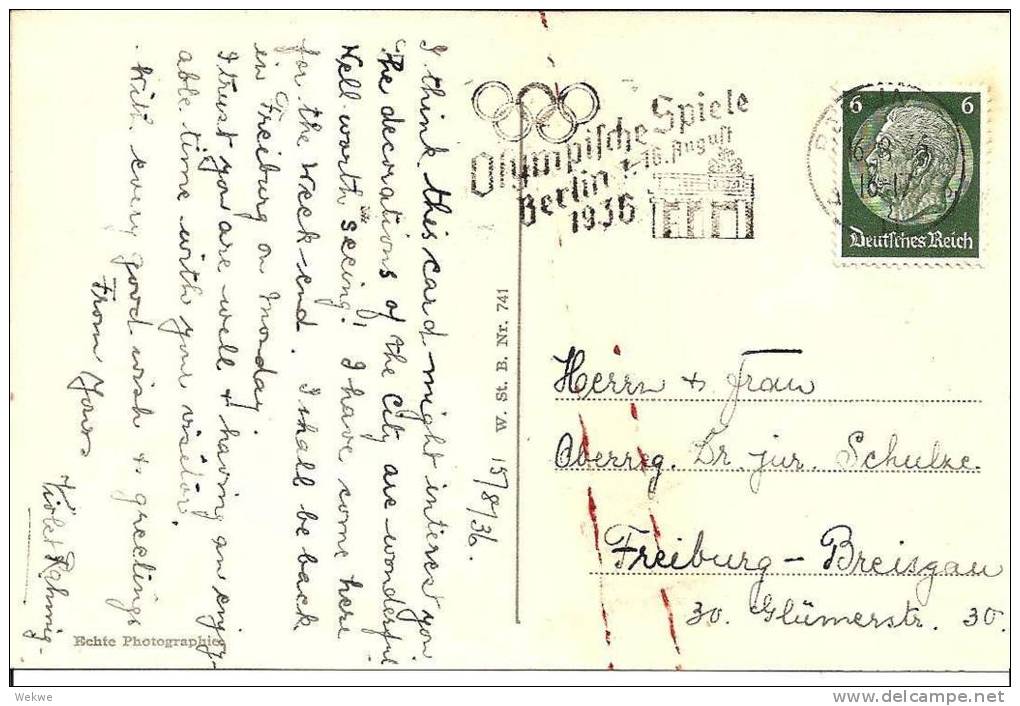 15/8/36.
I think this card might interest you
The decorations of the City are wonderful
Well worth seeing! I have come here
for the week-end. I shall be back
in Freiburg on Monday.
I trust you are well & having an enjoy-
able time with your visitor.
With every good wish & greetings
From Yours
Violet
Echte Photographie
W. St. B. Nr. 741
Olympische Spiele
Berlin 1.-16. August
1936
6 6
Deutsches Reich
Herrn & Frau
Oberreg. Dr. jur. Schulze.
Freiburg - Breisgau
30. Glümerstr. 30.
Wekwe
http://wekwe.delcampe.net